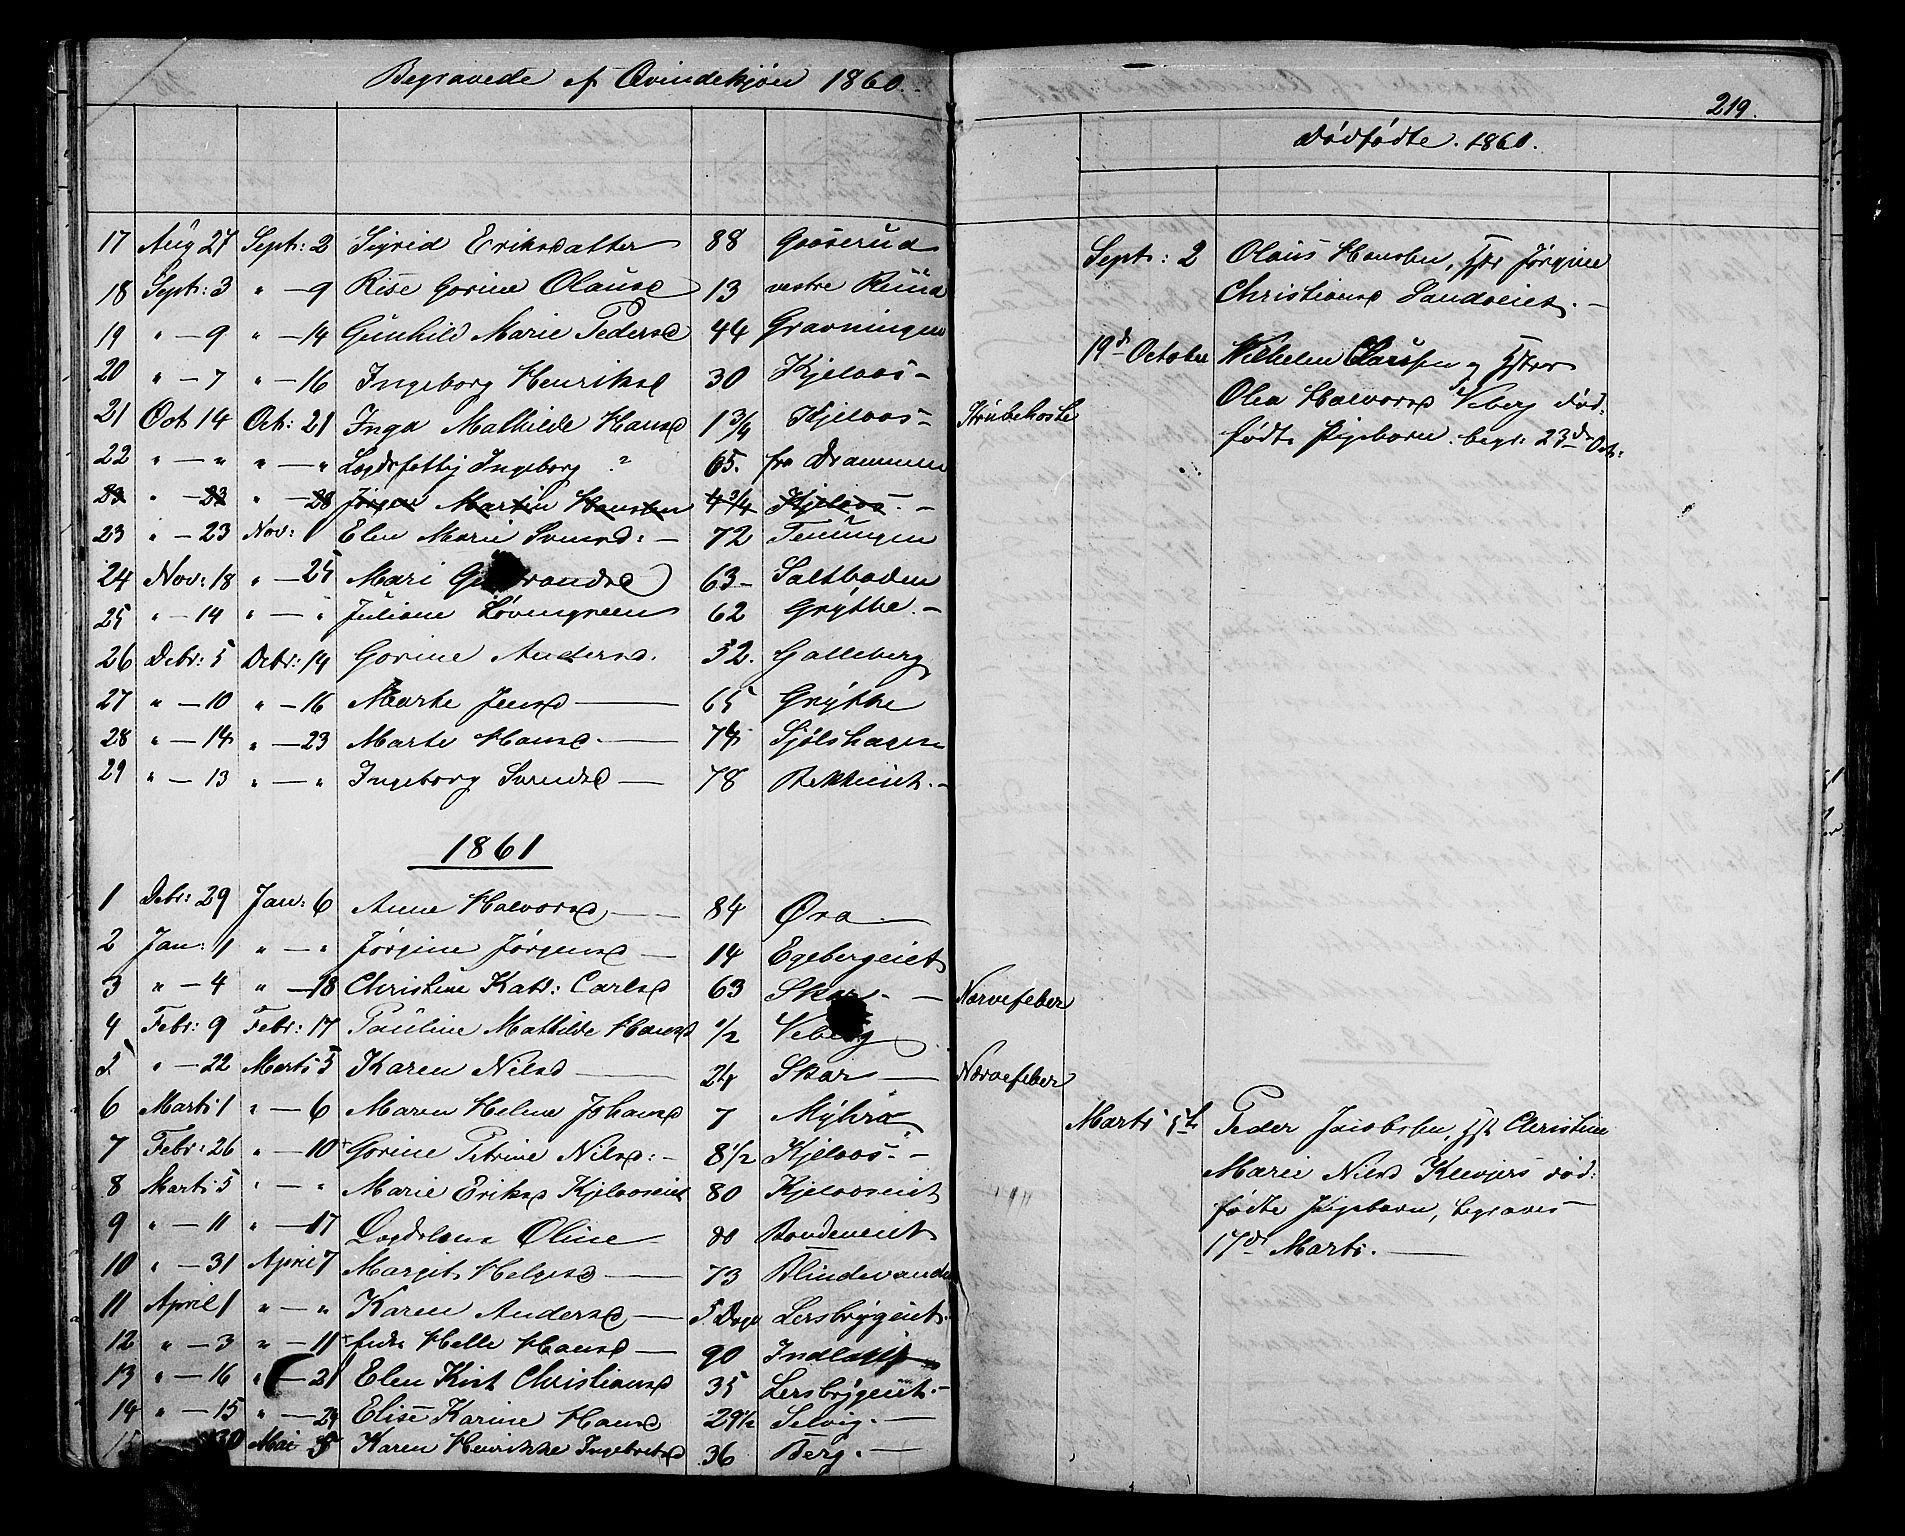 Begravede af Qvindekjøn 1860.
17 Aug 27 Sept: 2 Sigrid Eriksdatter 88 Gooserud
18 Sept: 3 " — 9 Rise Gorine Olausd 13 vestre Ruud
19 " — 9 " — 14 Gunhild Marie Pedersd 44 Gravningen
20 " — 7 " — 16 Ingeborg Henriksd 30 Kjeloos —
21 Oct 14 Oct: 21 Inga Mathilde Hansd 1 3/4 Kjeloos — Strubehoste
22 " — " " — " Lægdsfattig Ingeborg ? 65. fra Drammen
23 " — 23 " — 28 Jørgen Martin Hansen 4 3/4 Kjeloos —
23 " — 23 Nov: Elen Marie Svensd: — 72 Teningen
24 Nov: 18 " — 25 Mari Gulbrandsd 63 — Saltboden
25 " — 14 " — " Juliane Løvengreen 62 Grythe. —
26 Debr: 5 Debr: 14 Gorine Andersd. 52. Galleberg
27 " — 10 " — 16 Marte Jensd — 65 Grythe
28 " — 14 " — 23 Marte Hansd. — 74 Sjølshagen
29 " — 13 " — " Ingeborg Svendsd — 78 Bekkeiet. —
1861
1 Debr: 29 Jan: 6 Anne Halvorsd — 84 Øra —
2 Jan: 1 " — " Jørgine Jørgensd — 14 Egebergeiet
3 " — 4 " — 18 Christine Kath: Carlsd 63 Skar. — Nervefeber
4 Febr: 9 Febr: 17 Pauline Mathilde Hansd 1/2 Veberg
5 " — 22 Marts 5 Karen Nilsd — 24 Skar — Nervefeber
6 Marts 1 " — 6 Maren Helene Johansd 7 Myhra
7 Febr: 26 " — 10 Gorine Petrine Nilsd: — 8 1/2 Kjeloos —
8 Marts 5 " — " Marie Eriksd Kjelooseiet 80 Kjelooseiet
9 " — 11 " — 17 Lægdslem Oline 80 Bondeneiet
10 " — 31 April 7 Margit Helgesd — 73 Blindevandet
11 April 1 " — " Karen Andersd — 5 Dage Lersbrygeiet.
12 " — 3 " — 11 Helle Hansd — 90
13 " — 16 " — 21 Elen Kirst Christiansd 35 Lersbrygeiet. —
14 " — 15 " — 24 Elise Karine Hansd 29 1/2 Selvig. —
15 30 Mai 5 Karen Henrikke Ingebretsd 36 Berg. —
219.
Dødfødte. 1860.
Sept: 2 Olaus Hansen, Hstr Jørgine
Christiansd Sandveiet. —
19de October Wilhelm Clausen og Hstru
Olea Halvorsd Veberg død-
født Pigebarn. begr: 23de Oct:
Marts 5te Peder Jacobsen, Hst Christine
Marie Nilsd Klevjer død:
fødte Pigebarn, begraves
17de Marts. —